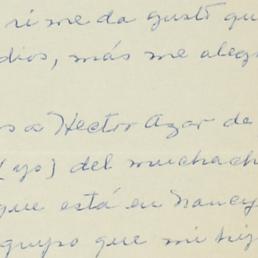 si me da gusto qu
dios, más me aleg
s a Hector Azar de
(yo) del muchach
que está en Nancy
grupo que mi hij